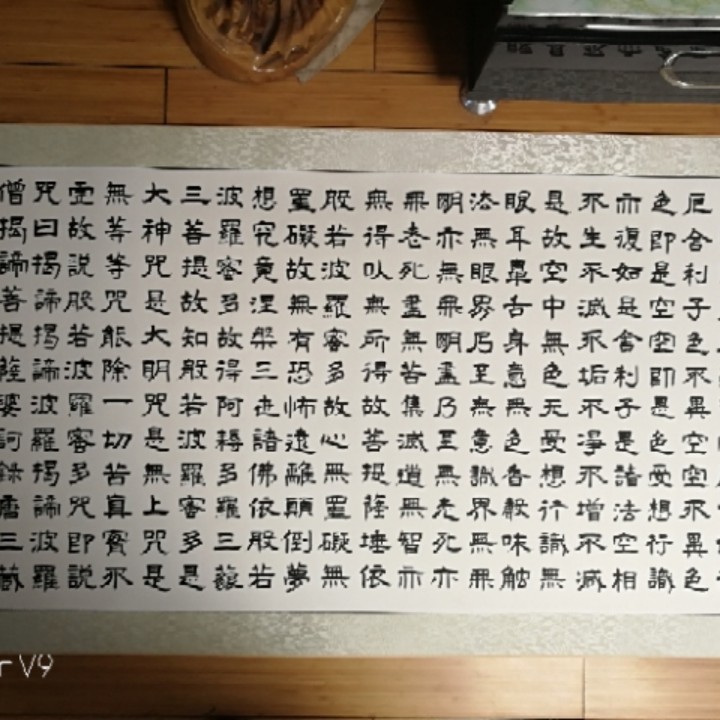 厄舍利子色不異空空不異色
色即是空空即是色受想行識
亦復如是舍利子是諸法空相
不生不滅不垢不淨不增不減
是故空中無色无受想行識無
眼耳鼻舌身意無色香聲味觸
法無眼界乃至無意識界無無
明亦無無明盡乃至無老死亦
無老死盡無苦集滅道無智亦
無得以無所得故菩提薩埵依
般若波羅蜜多故心無罣礙無
罣礙故無有恐怖遠離顛倒夢
想究竟涅槃三世諸佛依般若
波羅蜜多故得阿耨多羅三藐
三菩提故知般若波羅蜜多是
大神咒是大明咒是無上咒是
無等等咒能除一切苦真實不
虛故說般若波羅蜜多咒即說
咒曰揭諦揭諦波羅揭諦波羅
僧揭諦菩提薩婆訶錄唐三藏
r V9